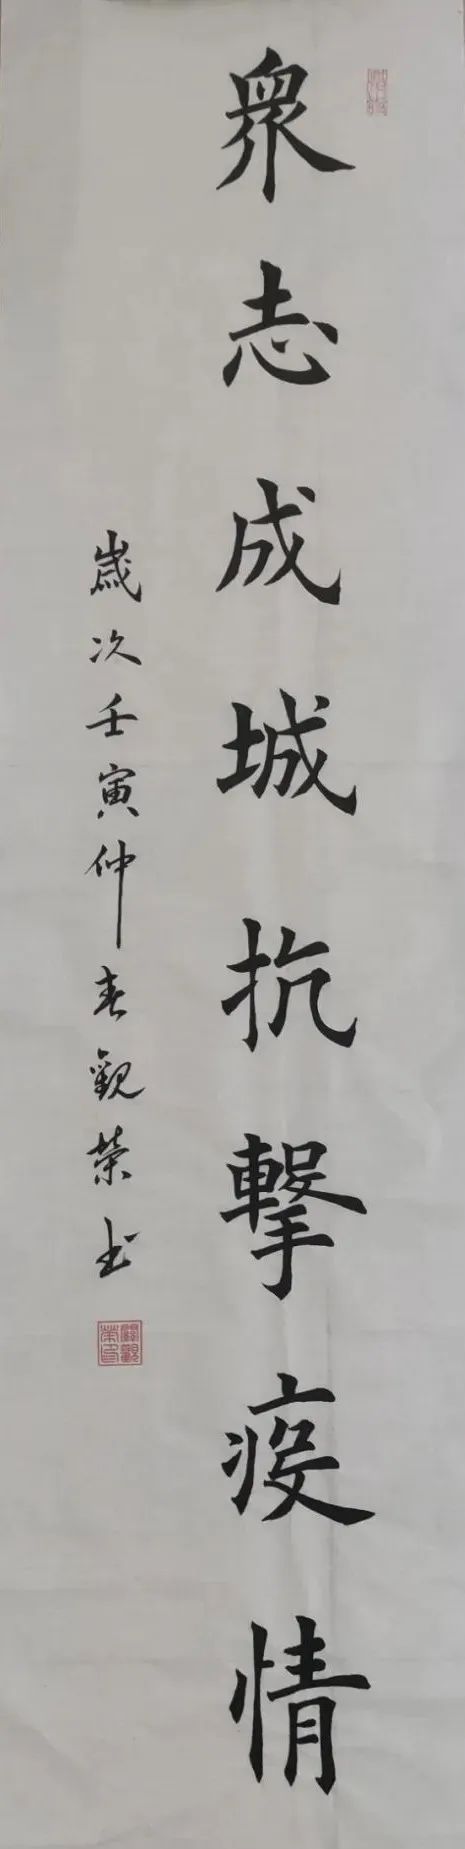 眾志成城抗擊疫情
歲次壬寅仲春觀榮书